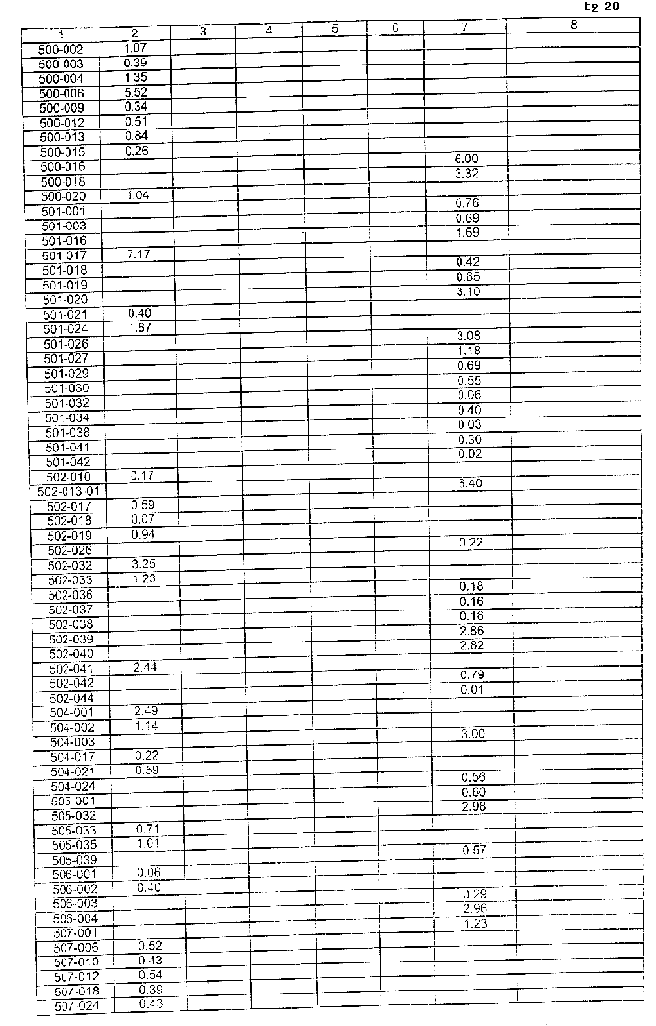 Eg 20
1 2 3 4 5 6 7 8
500-002 1.07
500-003 0.39
500-004 1.35
500-006 5.52
500-009 0.34
500-012 0.51
500-013 0.84
500-015 0.26
500-016 6.00
500-018 3.32
500-020 1.04
501-001 0.76
501-003 0.69
501-016 1.69
501-017 7.17
501-018 0.42
501-019 0.65
501-020 3.10
501-021 0.40
501-024 1.87
501-026 3.08
501-027 1.18
501-029 0.69
501-030 0.55
501-032 0.06
501-034 0.40
501-038 0.03
501-041 0.30
501-042 0.02
502-010 0.17
502-013-01 3.40
502-017 0.59
502-018 0.07
502-019 0.94
502-026 0.22
502-032 3.25
502-033 1.23
502-036 0.18
502-037 0.16
502-038 0.16
502-039 2.86
502-040 2.62
502-041 2.44
502-042 0.79
502-044 0.01
504-001 2.49
504-002 1.14
504-003 3.00
504-017 0.22
504-021 0.59
504-024 0.56
505-001 0.60
505-032 2.98
505-033 0.71
505-035 1.01
505-039 0.57
506-001 0.06
506-002 0.40
506-003 0.29
506-004 2.96
507-001 1.23
507-006 0.52
507-010 0.43
507-012 0.54
507-018 0.39
507-024 0.43